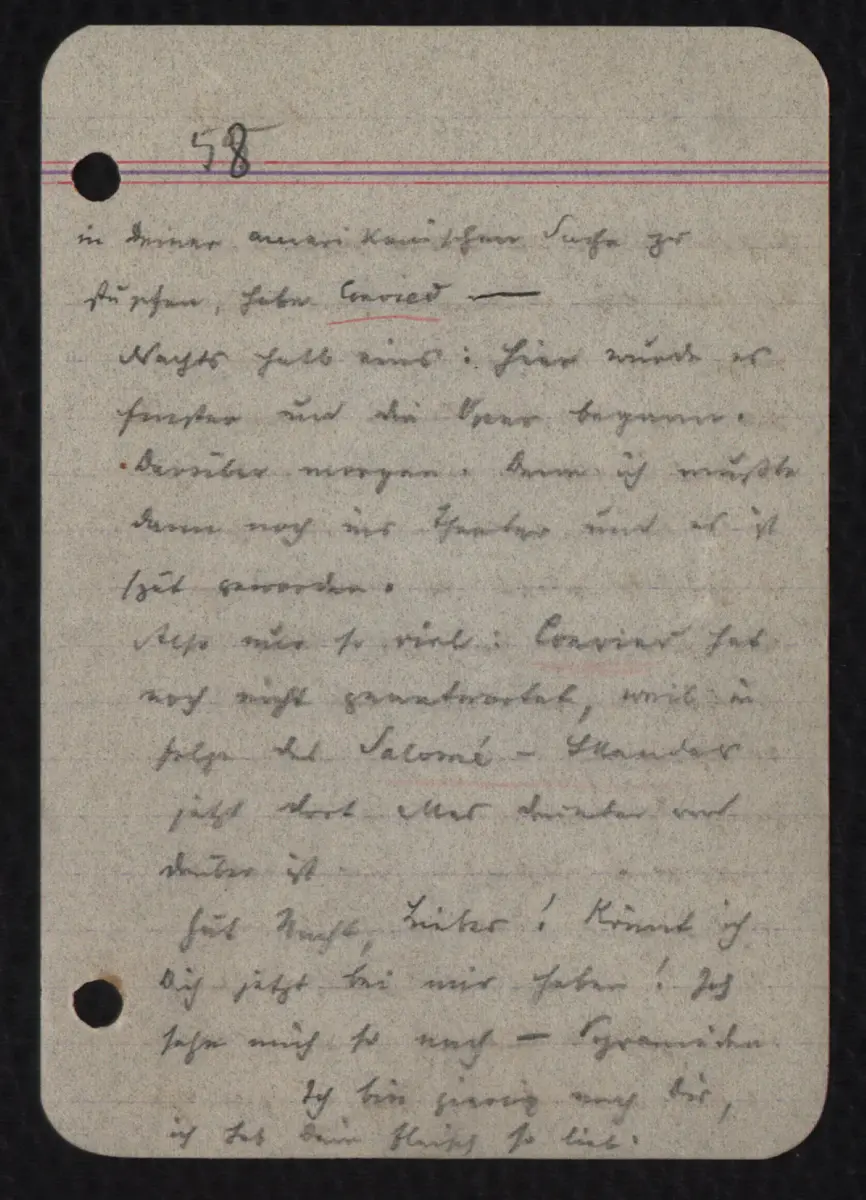 58
in Deiner amerikanischen Sache zu
stupfen, habe Conried —
Nachts halb eins: Hier wurde es
finster und die Oper begann.
Darüber morgen. Denn ich mußte
dann noch ins Theater und es ist
spät geworden.
Also nur so viel: Conried hat
noch nicht geantwortet, weil in
folge des Salomé-Skandals
jetzt dort Alles drunter und
drüber ist
Gut Nacht, Lieber! Könnt ich
Dich jetzt bei mir haben! Ich
sehn mich so nach — Pyramiden
Ich bin gierig nach Dir,
ich hab Dein Fleisch so lieb.